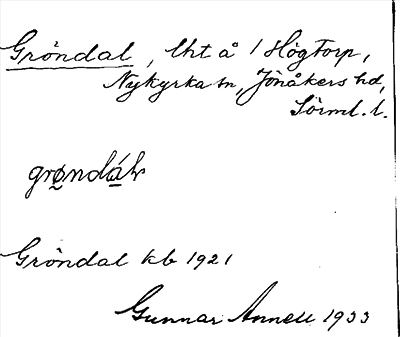 Gröndal, lht å 1 Högtorp,
Nykyrka sn, Jönåkers hd,
Sörml. l.
grøndáɫ
Gröndal kb 1921
Gunnar Annell 1933